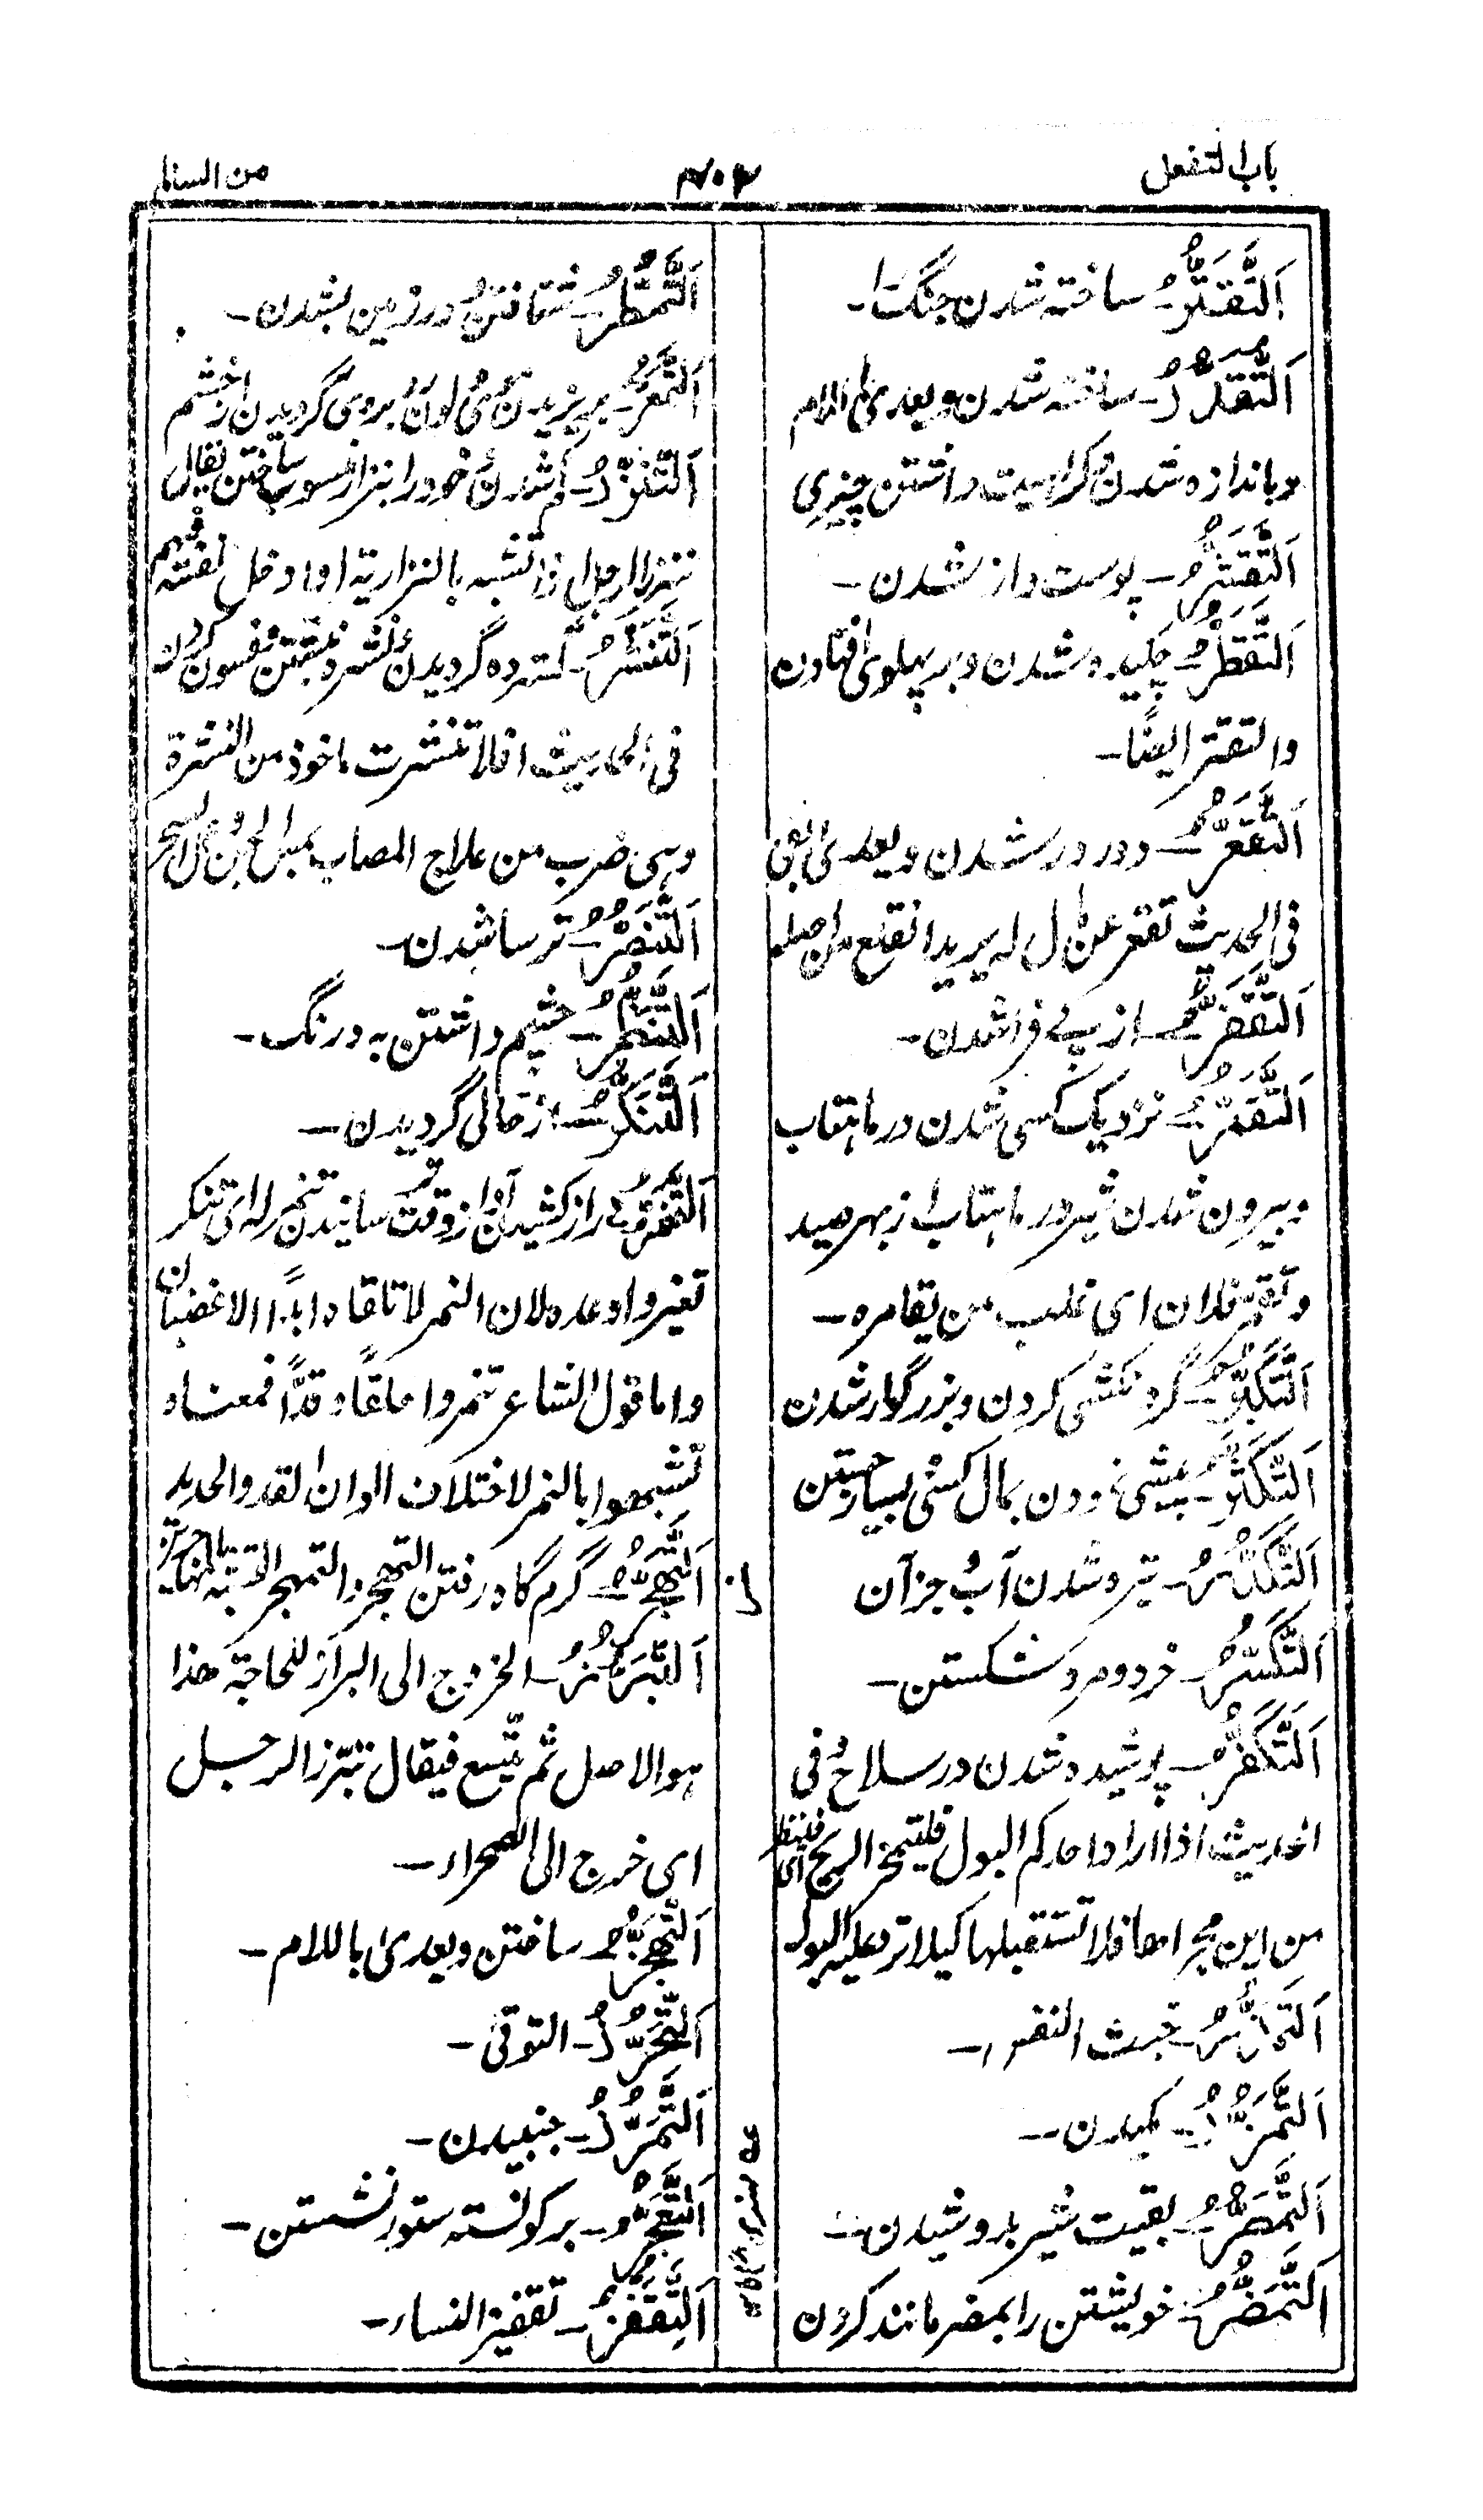 باب التفعل
من السالم
اَلتَّقَتُّرُ۔ ساخته شدن جنگ را۔
اَلتَّقَدُّرُ۔ ساخته شدن ویعدی باللام
وباندازه شدن وکراهیت داشتن چیزی
اَلتَّقَشُّرُ۔ پوست باز شدن۔
اَلتَّقَطُّرُ۔ چکیده شدن وبر پهلوی افتادن
والتقتر ایضًا۔
اَلتَّقَعُّرُ۔ دور در شدن ویعدی بعن
فی الحدیث تقعر عن مال له یرید انقلع من اصله
اَلتَّقَفُّرُ۔ از پے فرا شدن۔
اَلتَّقَمُّرُ۔ نزدیک کسی شدن در ماهتاب
وبیرون شدن شیر در ماهتاب از بهر صید
وتقمر فلان ای غلب من یقامره۔
اَلتَّكَبُّرُ۔ گردنکشی کردن وبزرگوار شدن
اَلتَّكَثُّرُ۔ بیشی نمودن بمال کسی بسیار جستن
اَلتَّكَدُّرُ۔ تیره شدن آب وجز آن
اَلتَّكَسُّرُ۔ خرد ومرد شکستن۔
اَلتَّكَفُّرُ۔ پوشیده شدن در سلاح وفی
الحدیث اذا اراد احدکم البول فلیتمخر الریح ای فلینظر
من این مجراها فلا تستقبلها کیلا ترد علیه البول
اَلتَّمَذُّرُ۔ خبث النفس۔
اَلتَّمَزُّرُ۔ مکیدن۔
اَلتَّمَصُّرُ۔ بقیت شیر بدوشیدن۔
اَلتَّمَضُّرُ۔ خویشتن را بمضر مانند کردن
اَلتَّمَطُّرُ۔ شتافتن ودر زمین بشدن۔
اَلتَّمَعُّرُ۔ بریزیدن موی ولون بروی گردیدن از خشم
اَلتَّنَزُّرُ۔ کم شدن وخود را بنزار منسوب ساختن یقال
تنزر الرجل اذا تشبه بالنزاریة او ادخل نفسه فیهم
اَلتَّنَشُّرُ۔ گسترده گردیدن ونشره نبشتن وفسون کردن
فی الحدیث افلا تنشرت ماخوذ من النشرة
وهی ضرب من علاج المصاب بمس الجن او عمل السحر
اَلتَّنَصُّرُ۔ ترسا شدن۔
اَلتَّنَظُّرُ۔ چشم داشتن به درنگ۔
اَلتَّنَكُّرُ۔ از حالی گردیدن۔
اَلتَّنَمُّرُ۔ دراز کشیدن آواز وقت رسانیدن تنمر له ای تنکر
تغیر واوعده لان النمر لا تلقاه ابدًا الا غضبان
واما قول الشاعر تنمروا حلقًا وقدًّا فمعناه
تشبهوا بالنمر لاختلاف الوان القد والحدید
اَلتَّهَجُّرُ۔ گرم گاه رفتن التهجر والتمهجر التشبه بالمهاجرین
اَلتَّبَرُّزُ۔ الخروج الی البراز للحاجة هذا
هو الاصل ثم یتسع فیقال تبرّز الرجل
ای خرج الی الصحراء۔
اَلتَّجَهُّزُ۔ ساختن ویعدی باللام۔
اَلتَّحَرُّزُ۔ التوقی۔
اَلتَّمَرُّزُ۔ جنبیدن۔
اَلتَّعَجُّزُ۔ بر کونسته ستور نشستن۔
اَلتَّقَفُّزُ۔ تقفیز النساء۔